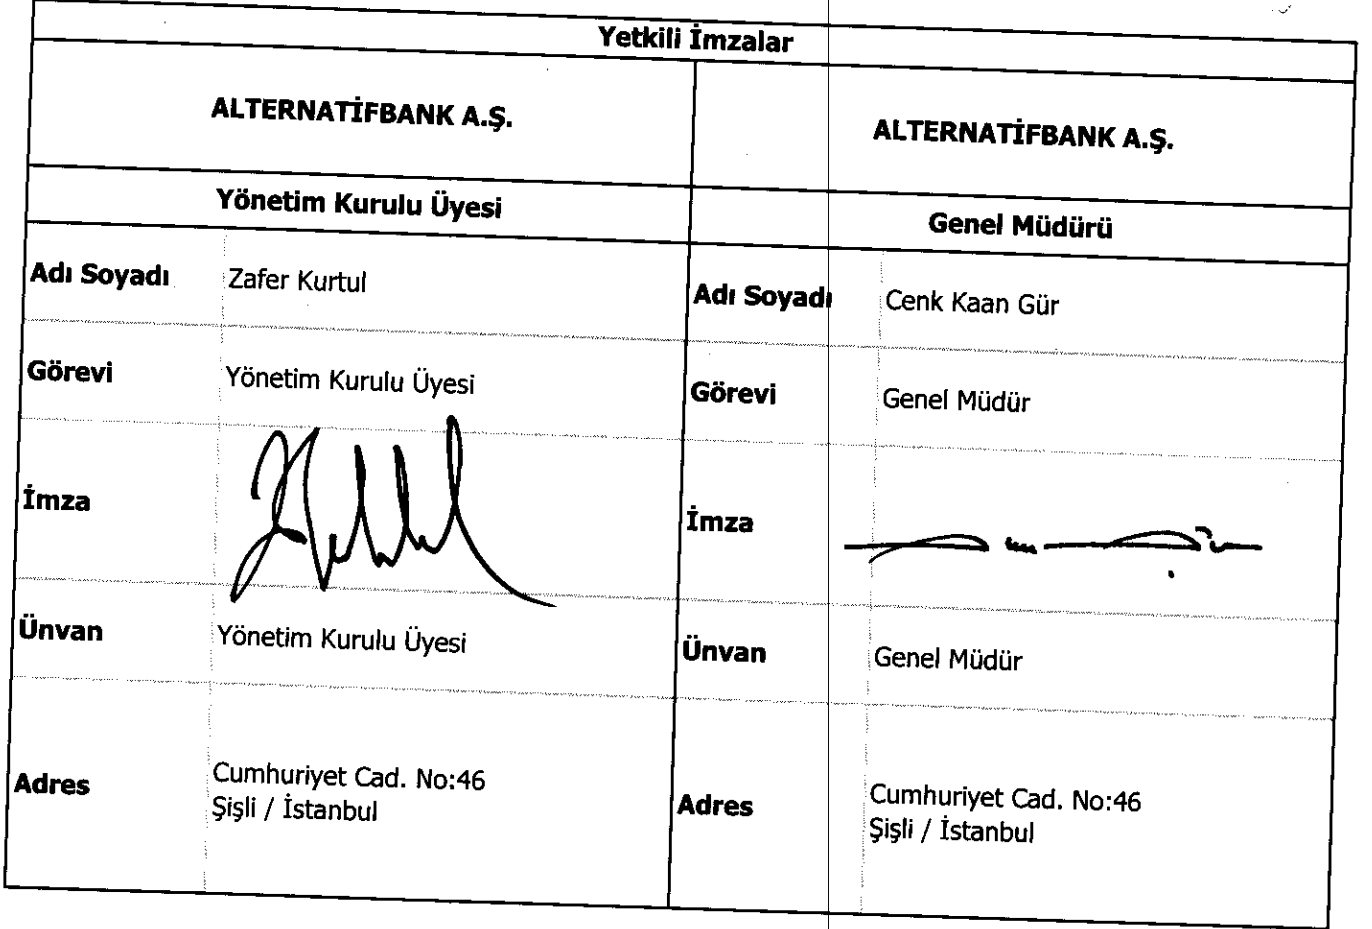 Yetkili İmzalar
ALTERNATİFBANK A.Ş.
ALTERNATİFBANK A.Ş.
Yönetim Kurulu Üyesi
Genel Müdürü
Adı Soyadı Zafer Kurtul
Adı Soyadı Cenk Kaan Gür
Görevi Yönetim Kurulu Üyesi
Görevi Genel Müdür
İmza
İmza
Ünvan Yönetim Kurulu Üyesi
Ünvan Genel Müdür
Adres Cumhuriyet Cad. No:46
Şişli / İstanbul
Adres Cumhuriyet Cad. No:46
Şişli / İstanbul